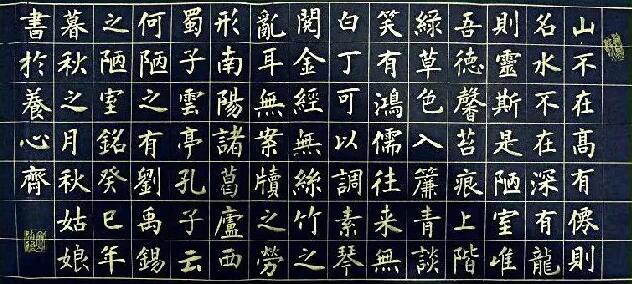 山不在高有僊則
名水不在深有龍
則靈斯是陋室唯
吾德馨苔痕上階
綠草色入簾青談
笑有鴻儒往来無
白丁可以調素琴
閱金經無絲竹之
亂耳無案牘之勞
形南陽諸葛廬西
蜀子雲亭孔子云
何陋之有劉禹錫
之陋室銘癸巳年
暮秋之月秋姑娘
書於養心齊